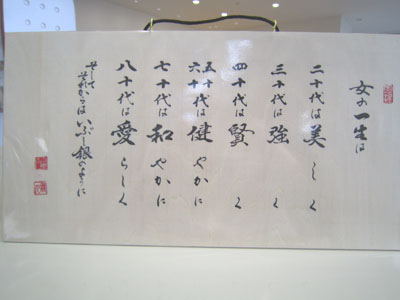 女の一生は
二十代は美しく
三十代は強く
四十代は賢く
五十代は
六十代は健やかに
七十代は和やかに
八十代は愛らしく
そして
それからは いぶし銀のように